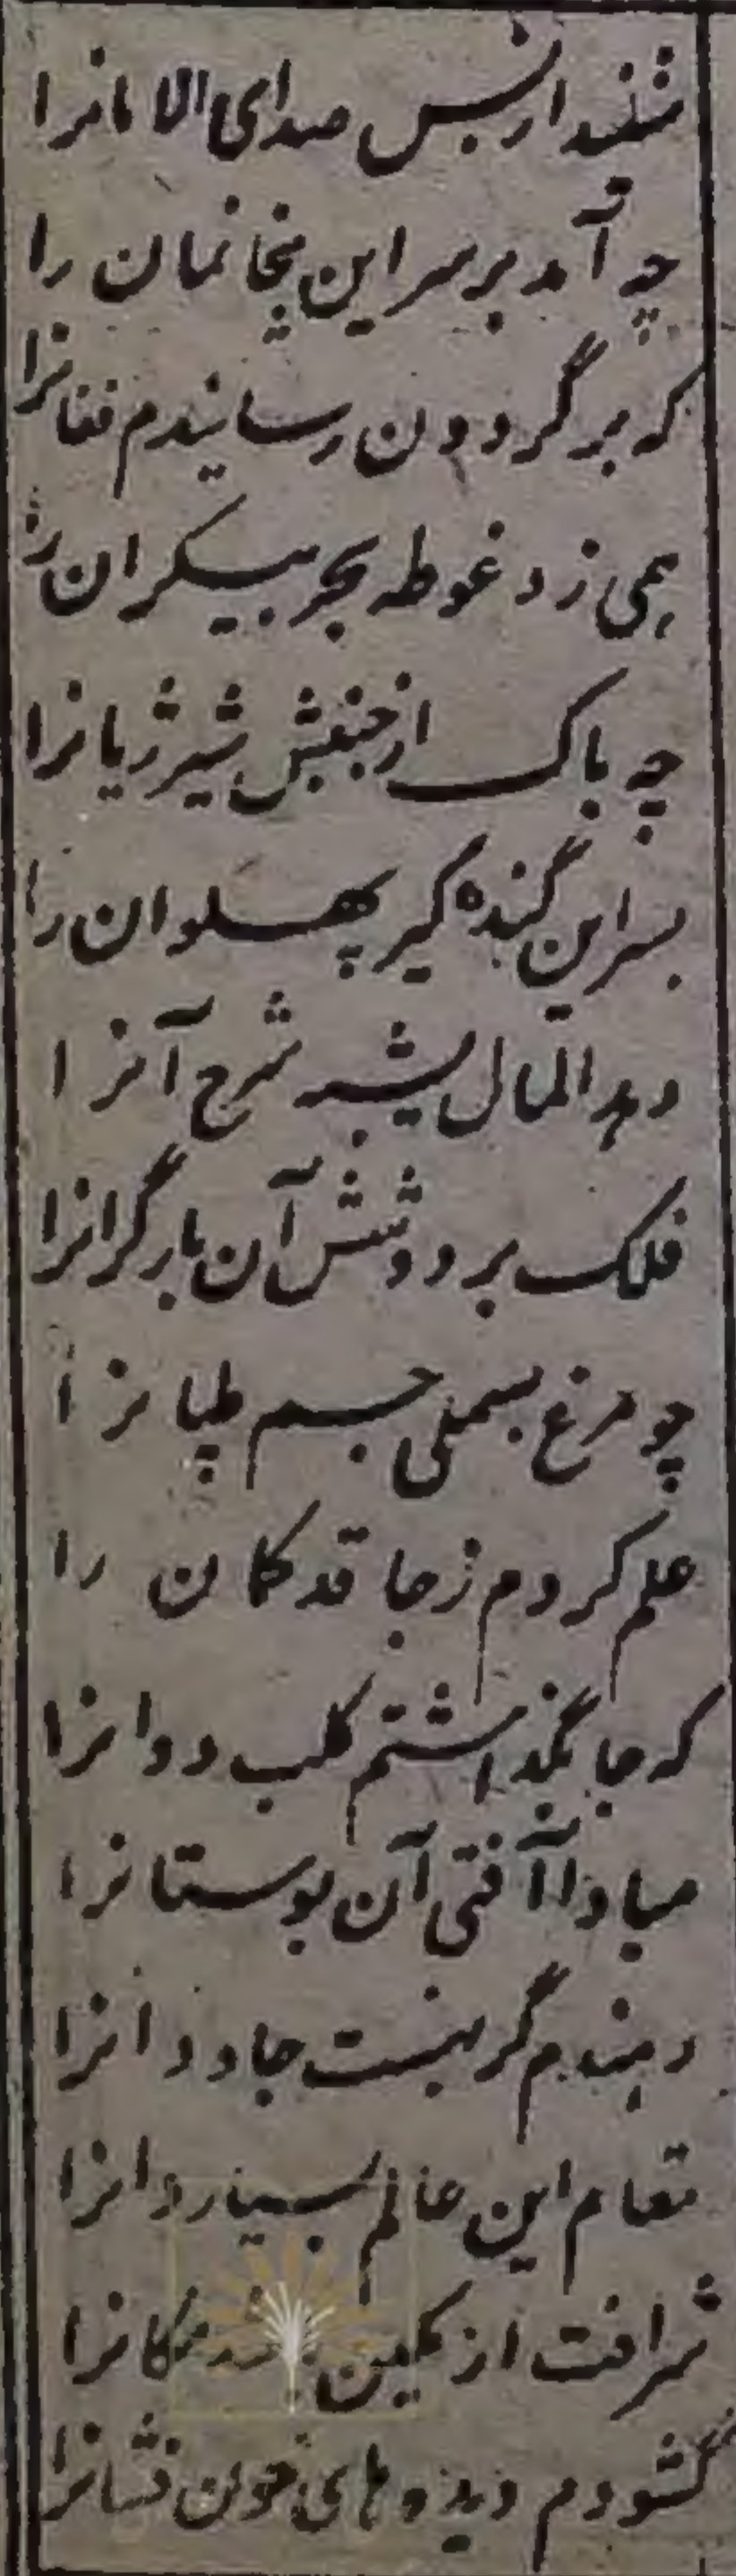 شنید از بس صدای الامانرا
چه آمد بر سر این پنجانمان را
که بر گردون رسانیدم فغانرا
همی زد غوطه بحر بیکران را
چه باک از جنبش شیر ژیانرا
بسر این گنده گیر پهلوان را
دهد المال لیشبه شرح آنرا
فلک بر دوشش آن بار گرانرا
چو مرغ بسملی جسم طپانرا
علم کردم ز جا قد کان را
که جا نگذاشتم کلب دوانرا
مبادا آفتی آن بوستانرا
دهندم گر بهشت جاودانرا
مقام این عالم بسیار دانرا
شرافت از مکین باشد مکانرا
گشودم دیده های خون فشانرا